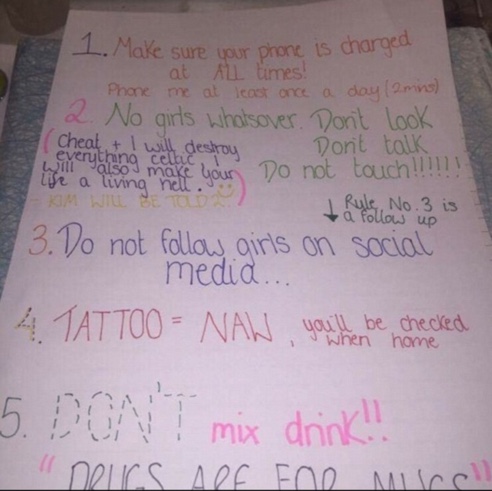 1. Make sure your phone is charged
at ALL times!
Phone me at least once a day (2mins)
2. No girls whatsover. Don't look
Don't talk
Do not touch!!!!!!
(Cheat + I will destroy
everything celtic I
will also make your
life a living hell. :)
KIM WILL BE TOLD)
↓ Rule No. 3 is
a follow up
3. Do not follow girls on social
media...
4. TATTOO = NAW, you'll be checked
when home
5. DON'T mix drink!!
"DRUGS ARE FOR MUGS"